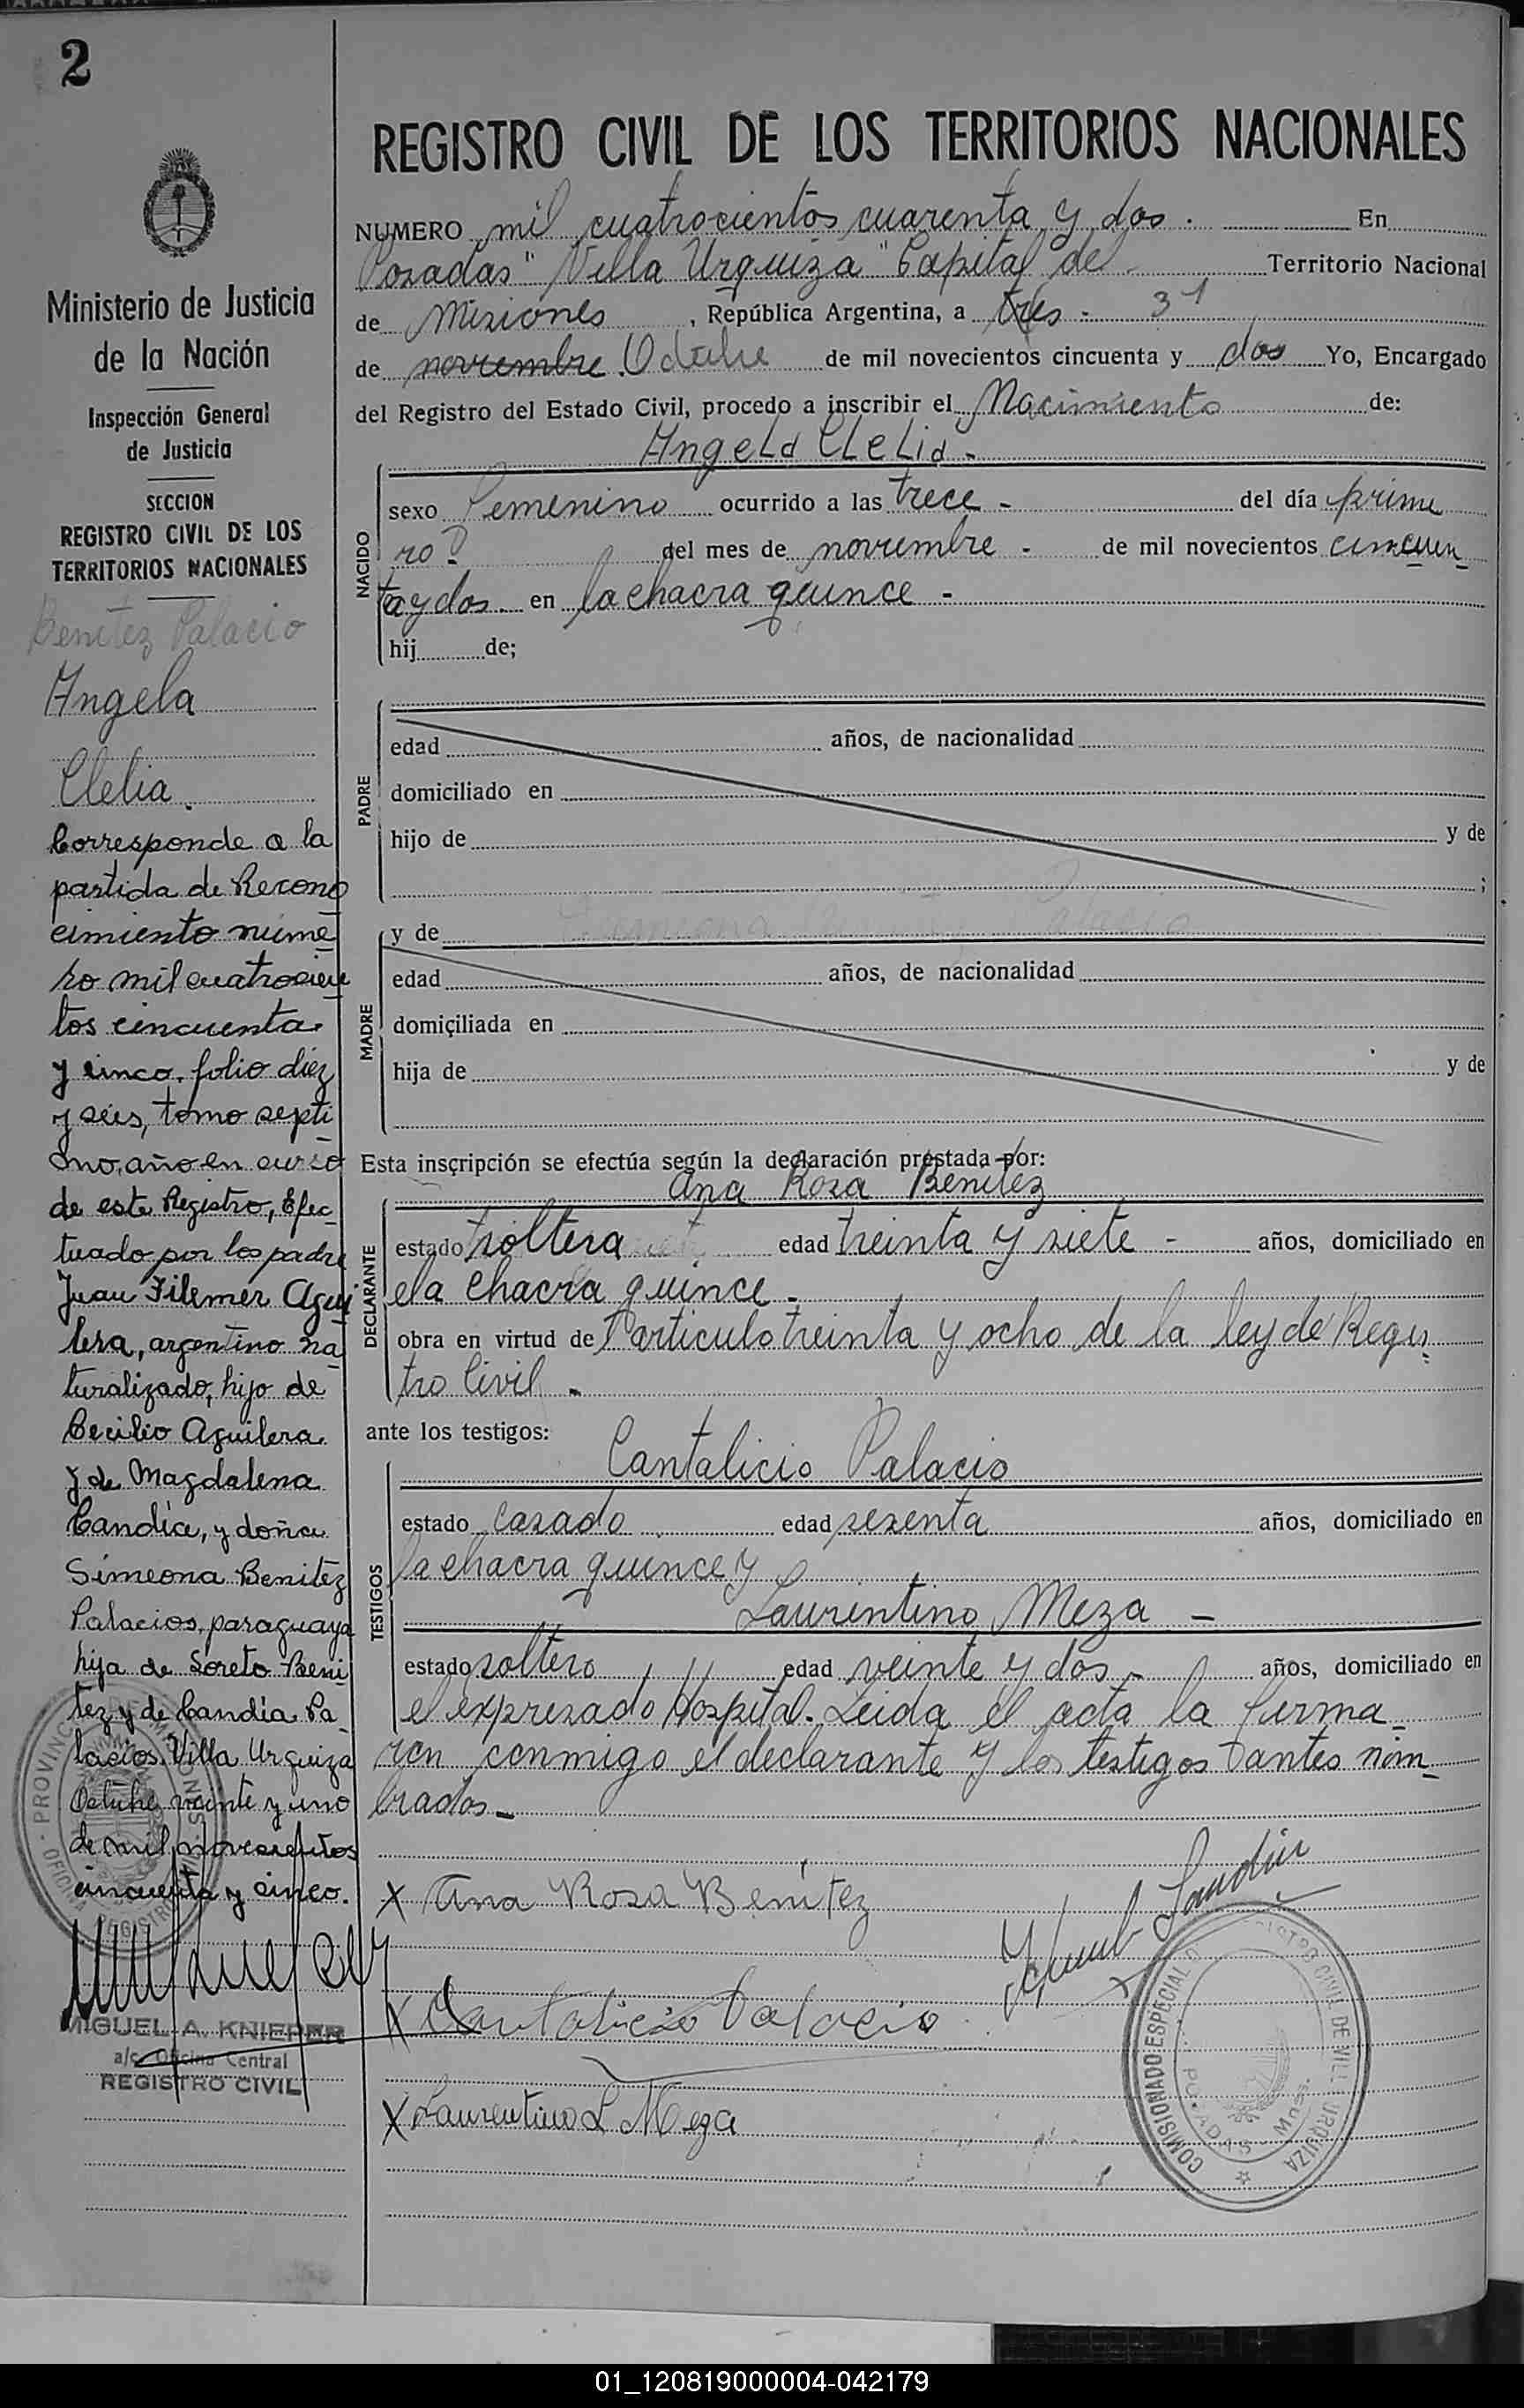 2
Ministerio de Justicia
de la Nación
Inspección General
de Justicia
SECCION
REGISTRO CIVIL DE LOS
TERRITORIOS NACIONALES
Benitez Palacio
Angela
Clelia.
Corresponde a la
partida de Recono
cimiento núme
ro mil cuatrocien
tos cincuenta
y cinco, folio diez
y seis, tomo septi
mo, año en curso
de este Registro, Efec
tuado por los padre
Juan Filemer Agui
lera, argentino na
turalizado, hijo de
Cecilio Aguilera
y de Magdalena
Candia, y doña
Simeona Benitez
Palacios, paraguaya
hija de Loreto Beni
tez y de Candia Pa
lacios. Villa Urquiza
Octubre veinte y uno
de mil novecientos
cincuenta y cinco.
MIGUEL A. KNIEPER
a/c Oficina Central
REGISTRO CIVIL
REGISTRO CIVIL DE LOS TERRITORIOS NACIONALES
NUMERO mil cuatrocientos cuarenta y dos. En
Posadas "Villa Urquiza" Capital del Territorio Nacional
de Misiones, República Argentina, a tres - 31
de novrembre Octubre de mil novecientos cincuenta y dos Yo, Encargado
del Registro del Estado Civil, procedo a inscribir el Nacimiento de:
Angela Clelia -
NACIDO
sexo Femenino ocurrido a las trece - del día prime
ro - del mes de novrembre - de mil novecientos cincuen
ta y dos. en la chacra quince -
hij de;
PADRE
edad años, de nacionalidad
domiciliado en
hijo de y de
;
MADRE
y de Simeona Palacio
edad años, de nacionalidad
domiciliada en
hija de y de
Esta inscripción se efectúa según la declaración prestada por:
Ana Rosa Benitez
DECLARANTE
estado soltera edad treinta y siete - años, domiciliado en
la chacra quince -
obra en virtud de articulo treinta y ocho de la ley de Regis
tro Civil -
ante los testigos:
Cantalicio Palacio
TESTIGOS
estado casado edad sesenta años, domiciliado en
la chacra quince y
Laurentino Meza -
estado soltero edad veinte y dos - años, domiciliado en
el expresado Hospital. Leida el acta la firma
ron conmigo el declarante y los testigos antes nom
brados -
X Ana Rosa Benítez
X Cantalicio Palacio
X Laurentino L Meza
COMISIONADO ESPECIAL REGISTRO CIVIL DE VILLA URQUIZA
POSADAS - Mnes.
01_120819000004-042179